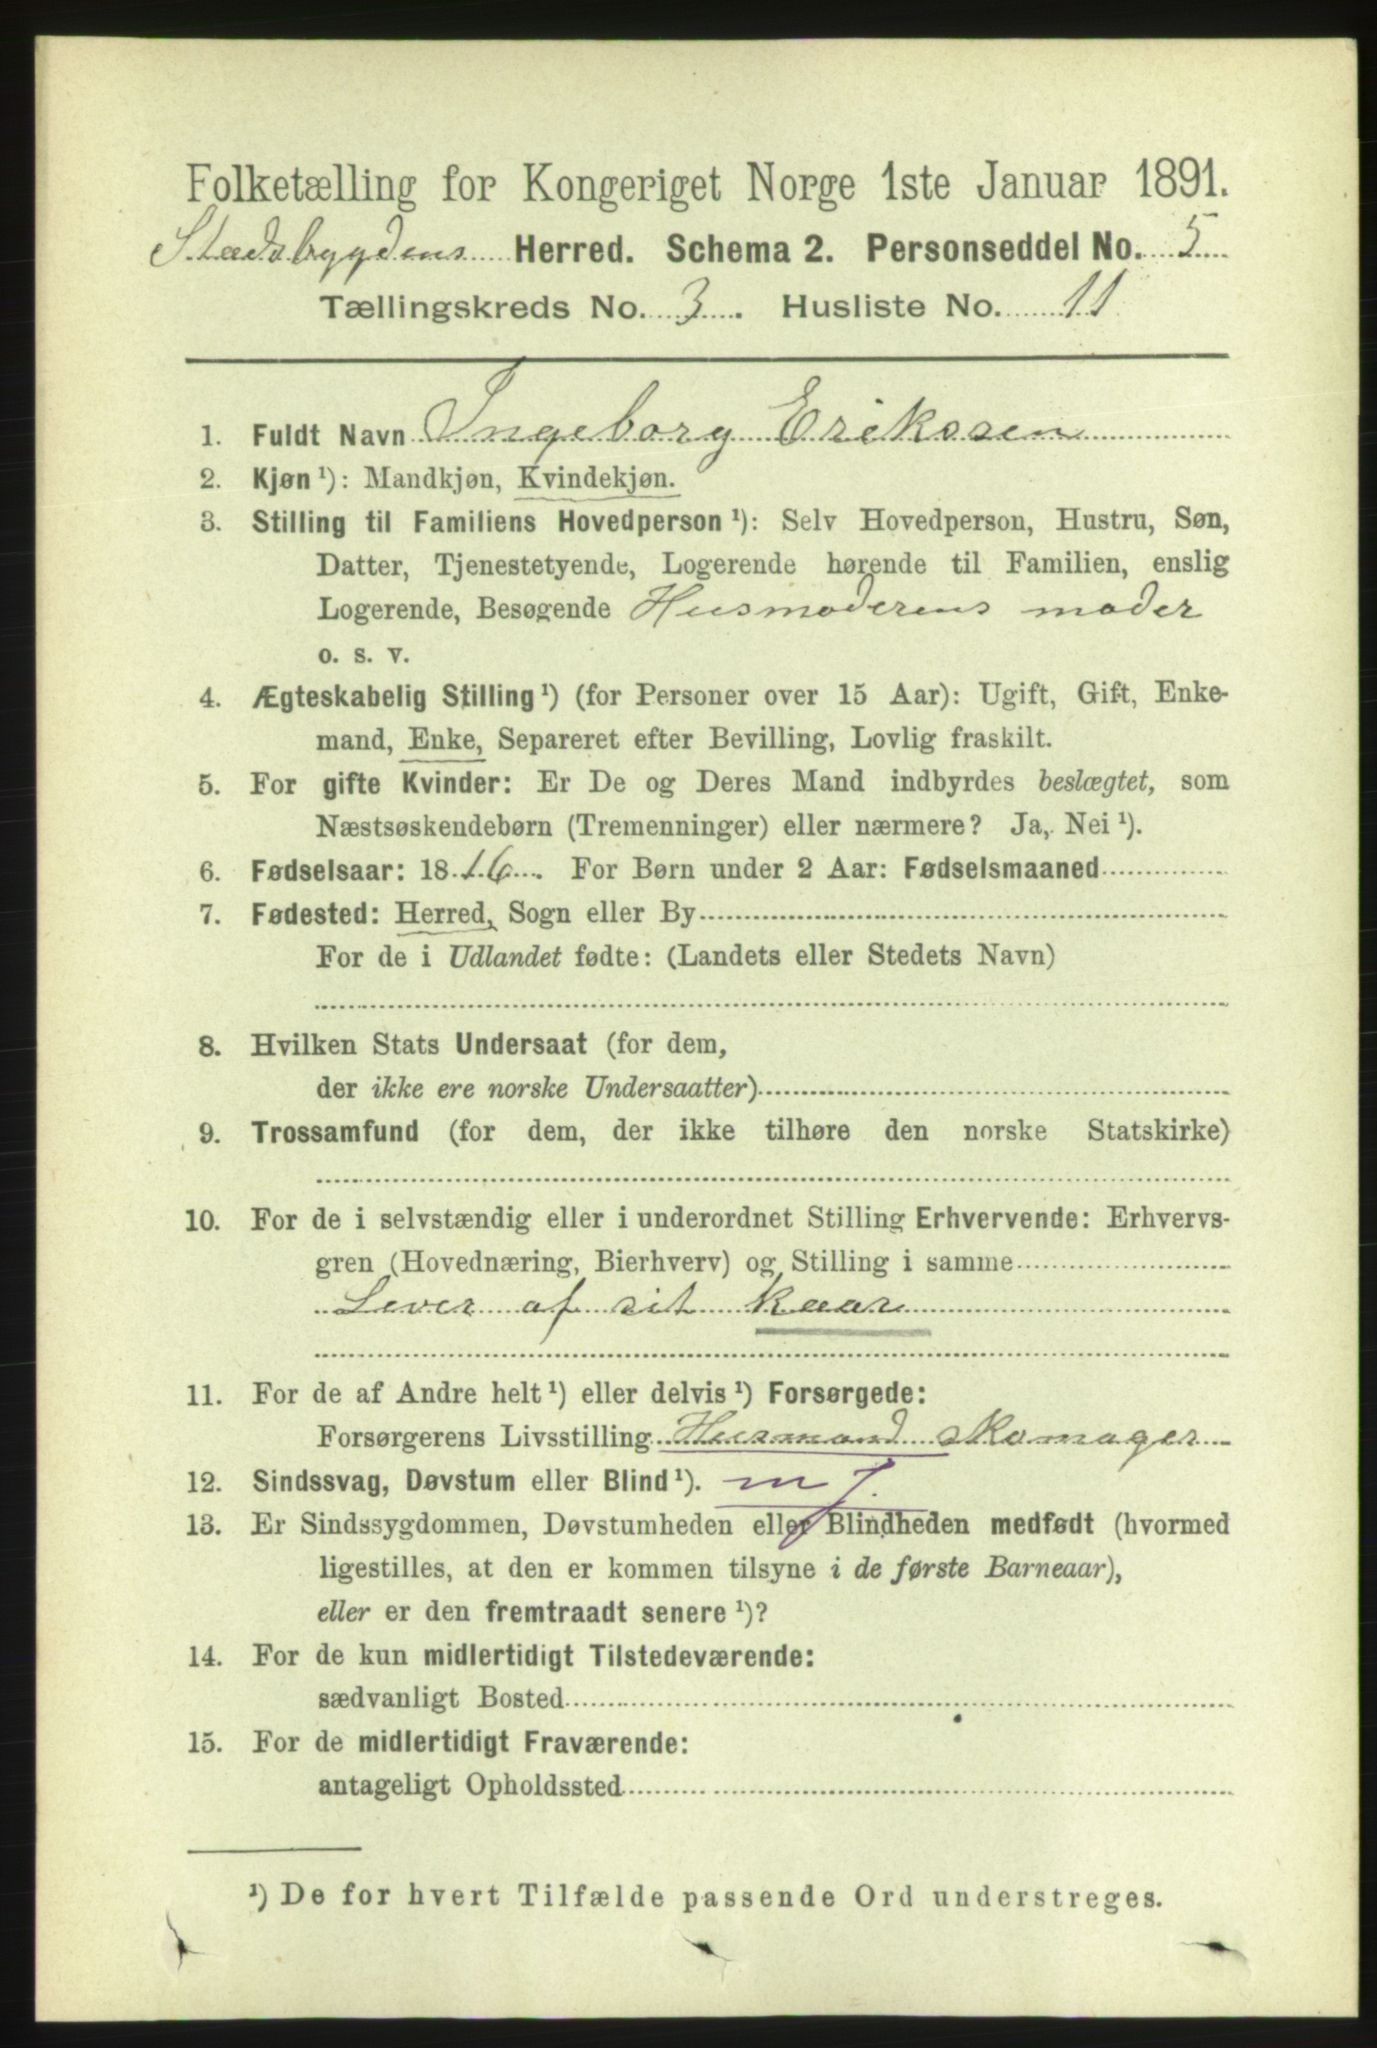 Folketælling for Kongeriget Norge 1ste Januar 1891.
Stadsbygdens Herred. Schema 2. Personseddel No. 5
Tællingskreds No. 3. Husliste No. 11
1. Fuldt Navn Ingeborg Eriksen
2. Kjøn ¹): Mandkjøn, Kvindekjøn.
3. Stilling til Familiens Hovedperson ¹): Selv Hovedperson, Hustru, Søn,
Datter, Tjenestetyende, Logerende hørende til Familien, enslig
Logerende, Besøgende Husmoderens moder
o. s. v.
4. Ægteskabelig Stilling ¹) (for Personer over 15 Aar): Ugift, Gift, Enke-
mand, Enke, Separeret efter Bevilling, Lovlig fraskilt.
5. For gifte Kvinder: Er De og Deres Mand indbyrdes beslægtet, som
Næstsøskendebørn (Tremenninger) eller nærmere? Ja, Nei ¹).
6. Fødselsaar: 1816. For Børn under 2 Aar: Fødselsmaaned
7. Fødested: Herred, Sogn eller By
For de i Udlandet fødte: (Landets eller Stedets Navn)
8. Hvilken Stats Undersaat (for dem,
der ikke ere norske Undersaatter)
9. Trossamfund (for dem, der ikke tilhøre den norske Statskirke)
10. For de i selvstændig eller i underordnet Stilling Erhvervende: Erhvervs-
gren (Hovednæring, Bierhverv) og Stilling i samme
Lever af sit kaar
11. For de af Andre helt ¹) eller delvis ¹) Forsørgede:
Forsørgerens Livsstilling Husmand Skomager
12. Sindssvag, Døvstum eller Blind ¹). m f.
13. Er Sindssygdommen, Døvstumheden eller Blindheden medfødt (hvormed
ligestilles, at den er kommen tilsyne i de første Barneaar),
eller er den fremtraadt senere ¹)?
14. For de kun midlertidigt Tilstedeværende:
sædvanligt Bosted
15. For de midlertidigt Fraværende:
antageligt Opholdssted
¹) De for hvert Tilfælde passende Ord understreges.